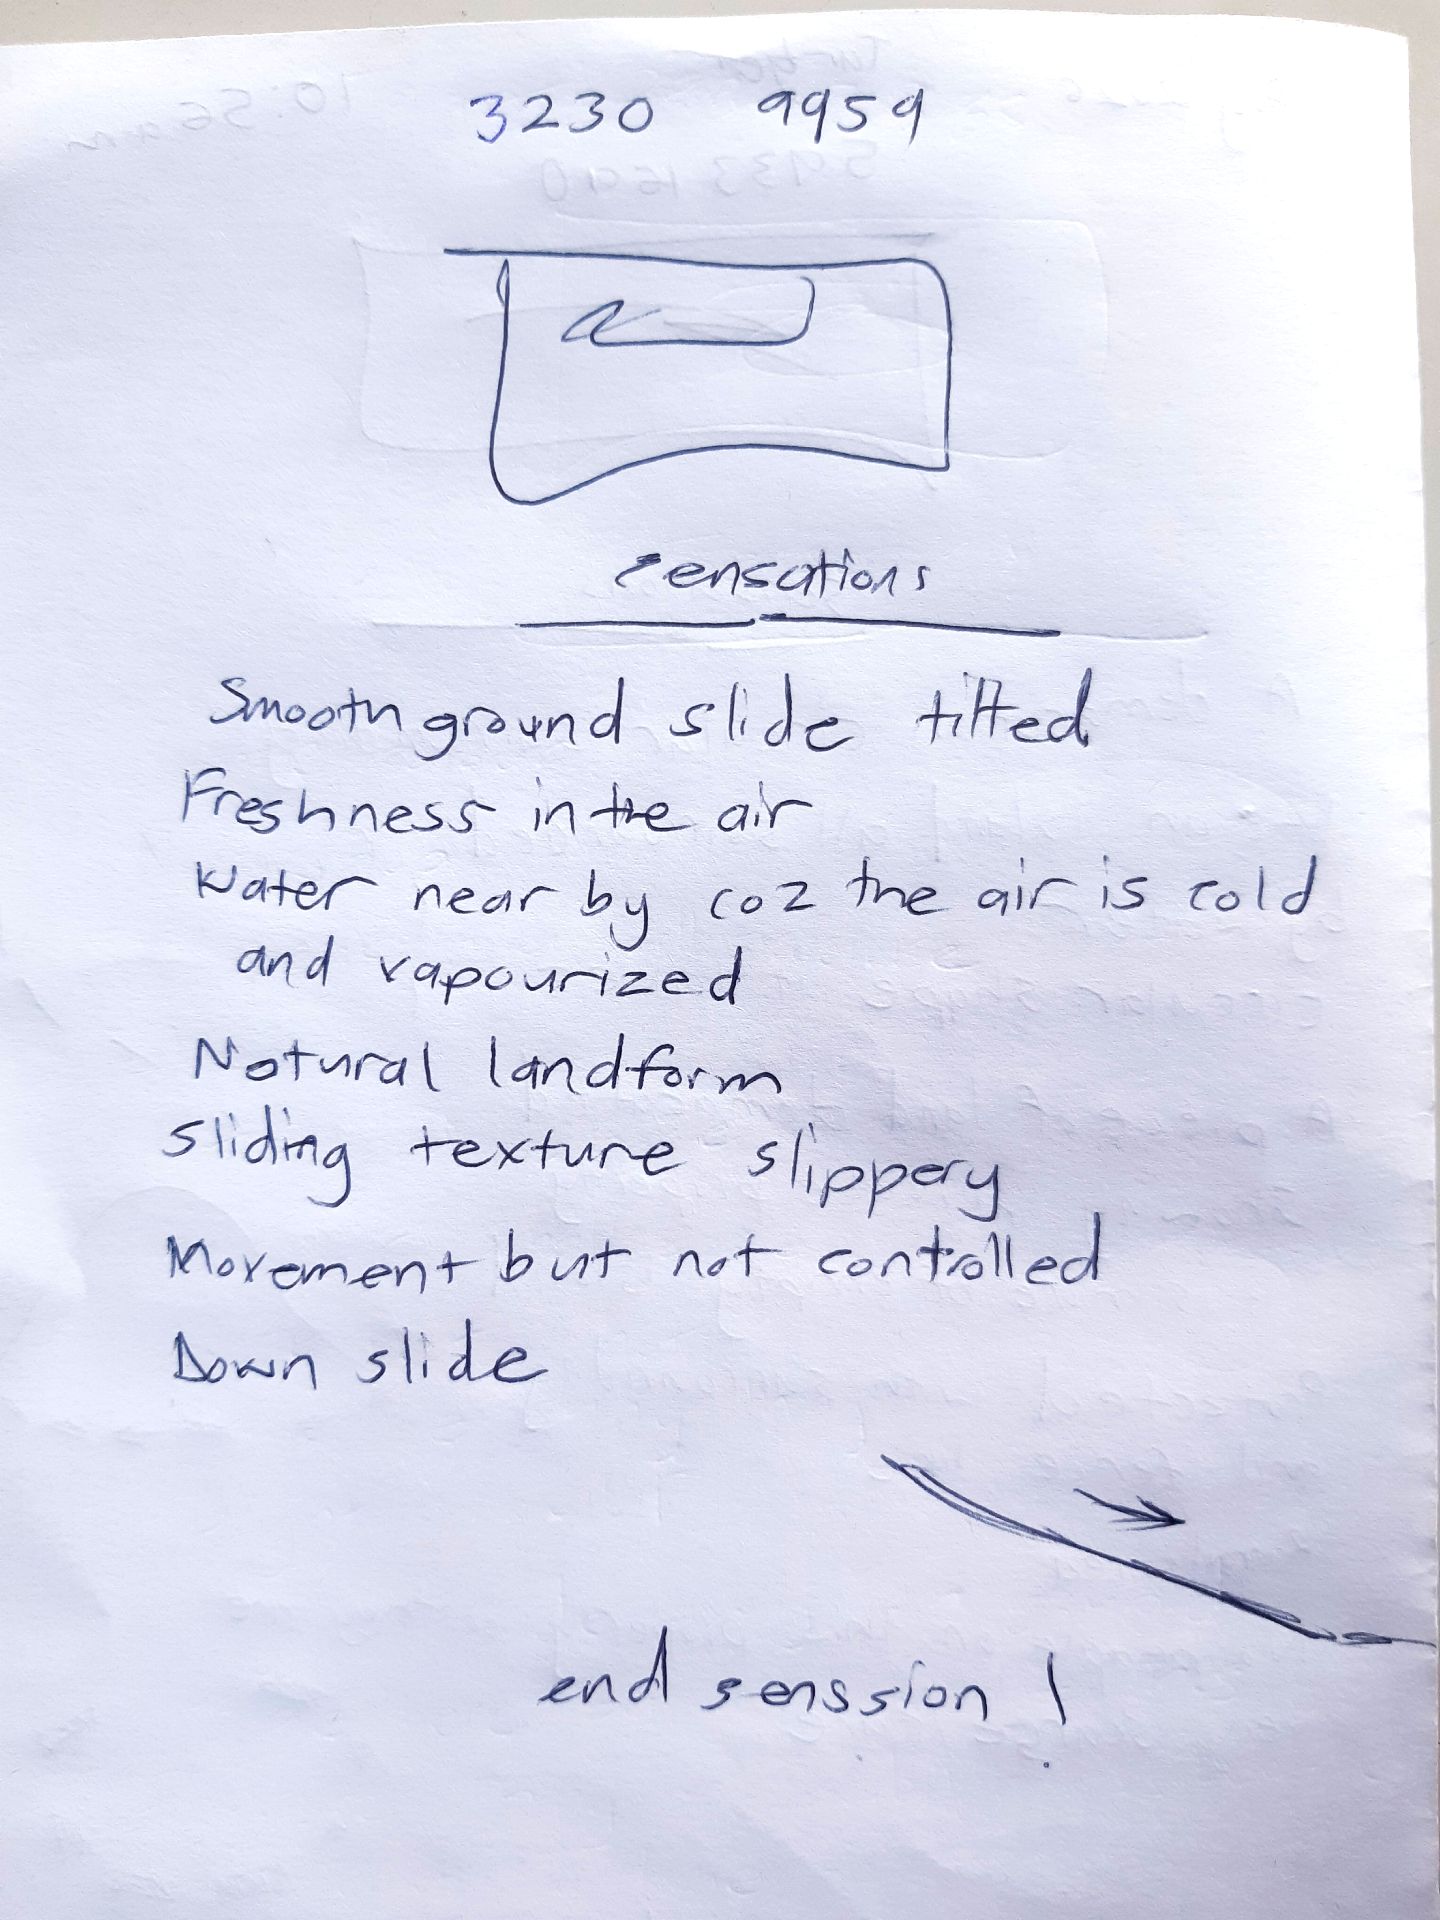 3230 9959
sensations
Smooth ground slide tilted
Freshness in the air
Water near by co2 the air is cold
and vapourized
Natural landform
sliding texture slippery
Movement but not controlled
Down slide
end senssion !